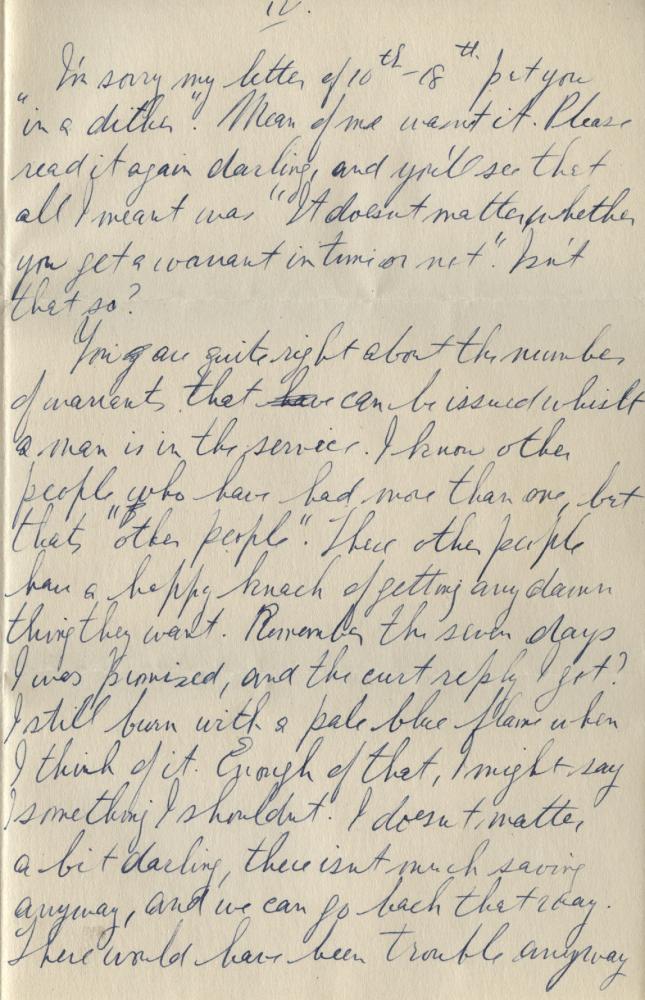 IV.
I'm sorry my letter of 10th-18th put you
"in a dither". Mean of me wasnt it. Please
read it again darling, and you'll see that
all I meant was "It doesnt matter whether
you get a warrant in time or not". Isn't
that so?
You are quite right about the number
of warrants that have can be issued whislt
a man is in the service. I know other
people who have had more than one, but
thats "other people". These other people
have a happy knack of getting any damn
thing they want. Remember the seven days
I was promised, and the curt reply I got?
I still burn with a pale blue flame when
I think of it. Enough of that, I might say
something I shouldnt. I doesnt matter
a bit darling, there isnt much saving
anyway, and we can go back that way.
There would have been trouble anyway